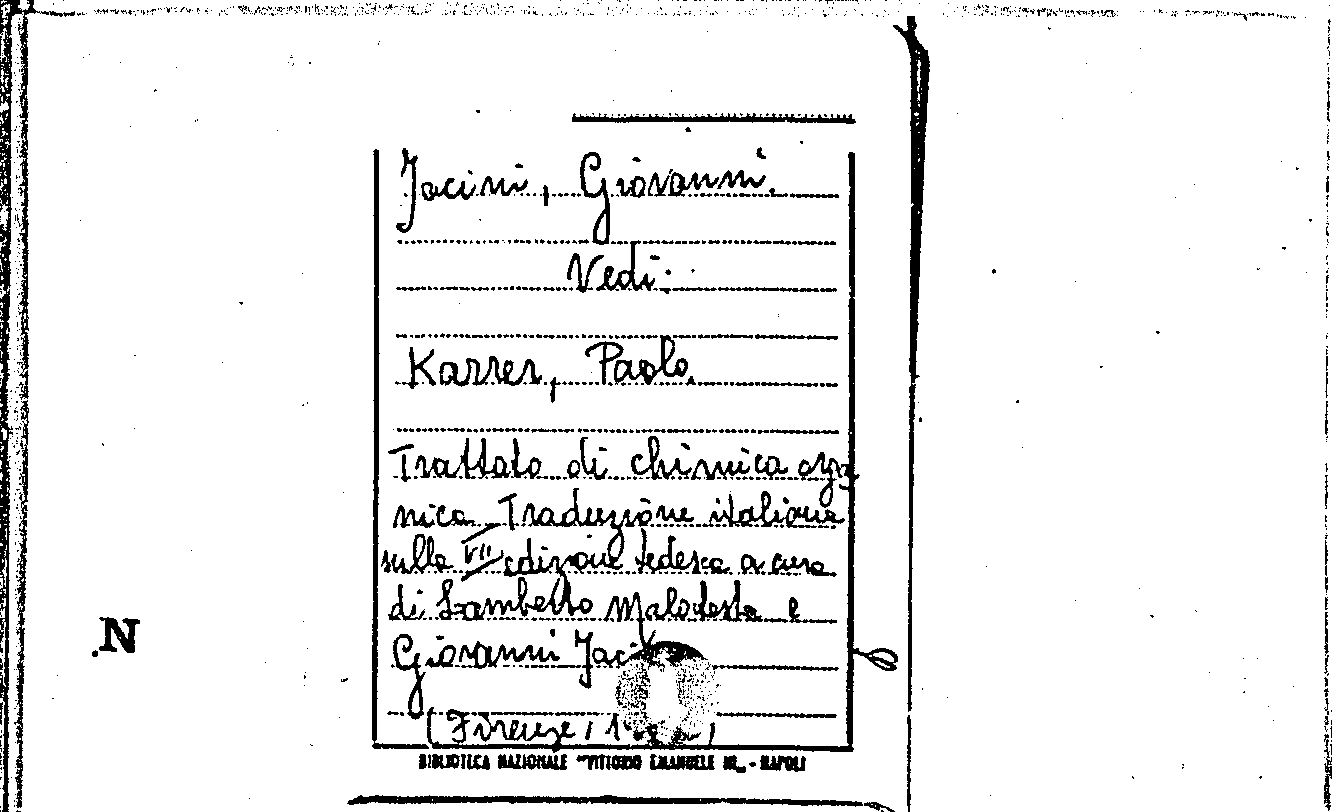 Jacini, Giovanni.
Vedi:
Karrer, Paolo.
Trattato di chimica orga
nica. Traduzione italiana
sulla VII edizione tedesca a cura
di Lamberto Malatesta e
Giovanni
(Firenze,
N
BIBLIOTECA NAZIONALE "VITTORIO EMANUELE III„ - NAPOLI